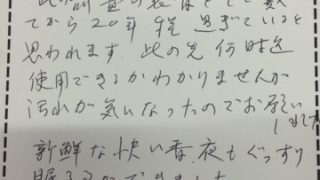 てから20年程過ぎていると
思われます。此の先何時迄
使用できるかわかりませんが
汚れが気になったのでお願い
しました
新鮮な快い香、夜もぐっすり